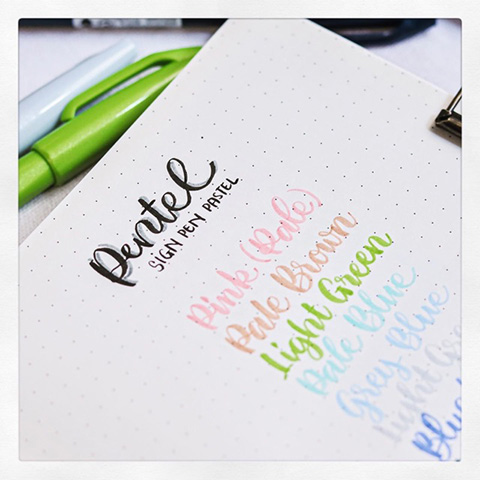 Pentel
SIGN PEN PASTEL
Pink (Pale)
Pale Brown
Light Green
Pale Blue
Grey Blue
Light